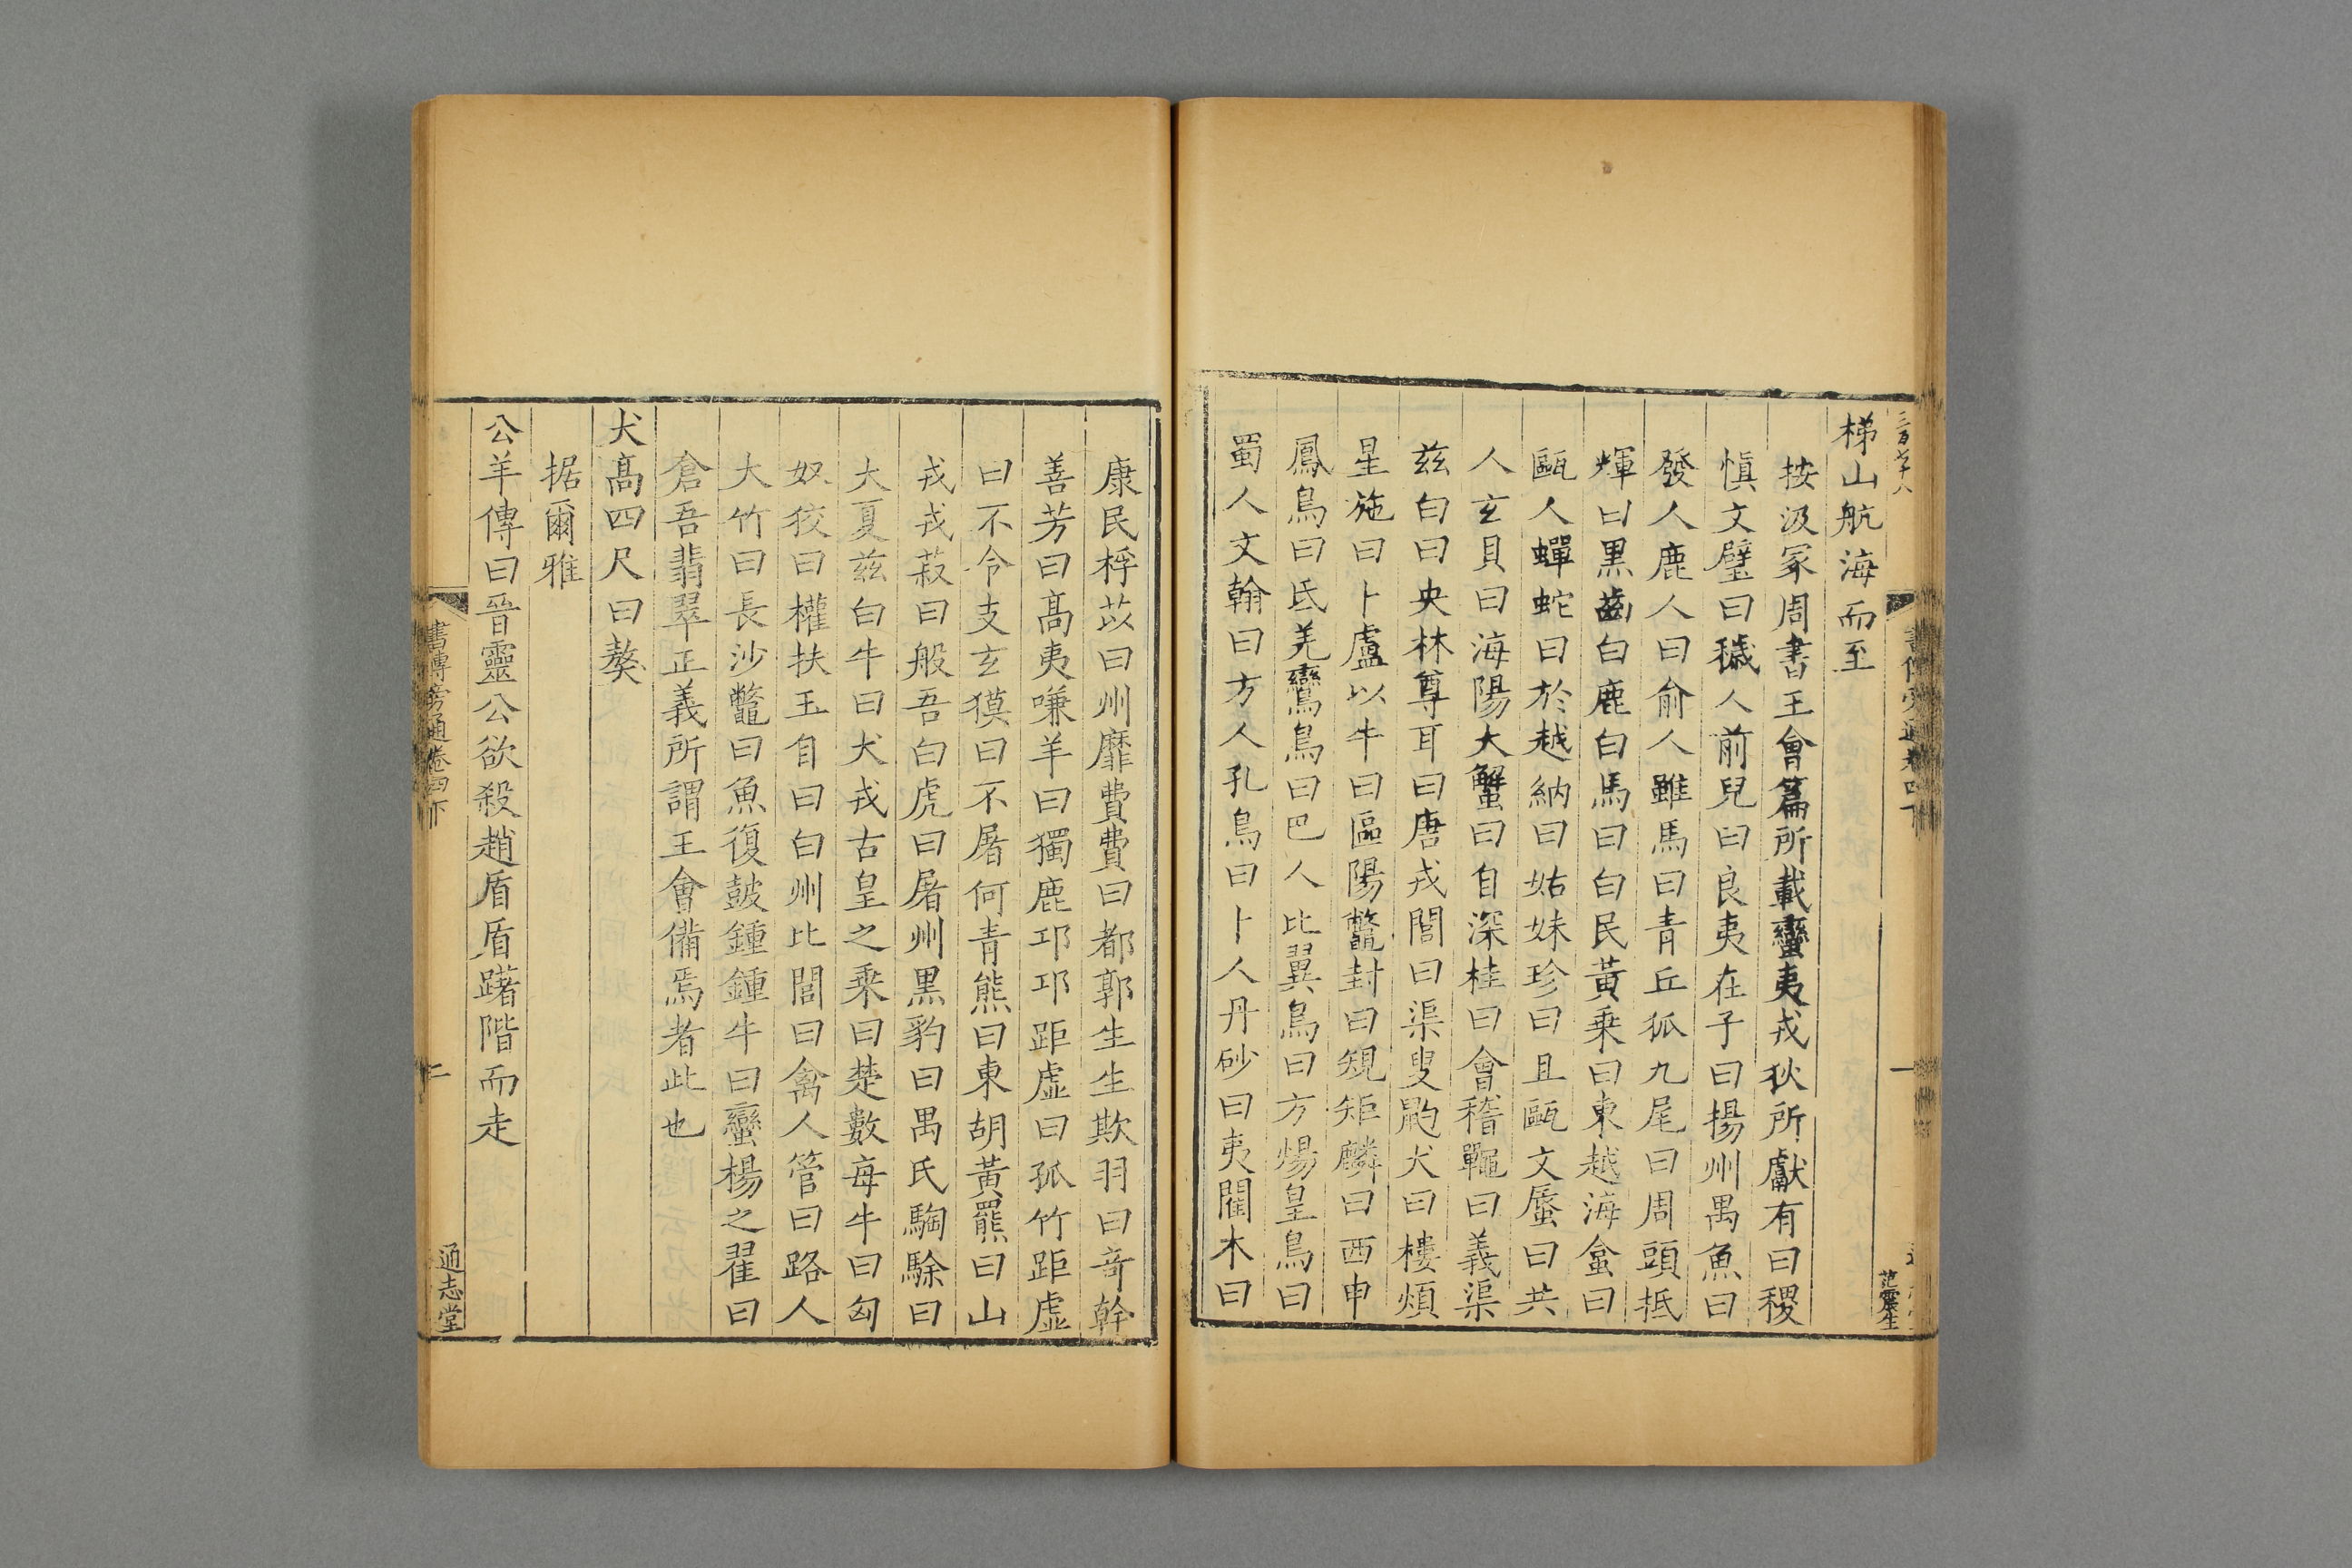 三百七十八
書傳旁通卷四下
一
范震生
梯山航海而至
按汲冢周書王會篇所載蠻夷戎狄所獻有曰稷
慎文璧曰穢人前兒曰良夷在子曰揚州禺魚曰
發人鹿人曰俞人雖馬曰青丘狐九尾曰周頭抵
煇曰黒齒白鹿白馬曰白民黃乗曰東越海㑹曰
甌人蟬蛇曰於越納曰姑妹珍曰且甌文蜃曰共
人玄貝曰海陽大蟹曰自深桂曰會稽鼉曰義渠
茲白曰央林尊耳曰唐戎閭曰渠叟䶂犬曰樓煩
星施曰卜盧以牛曰區陽鼈封曰規矩麟曰西申
鳳鳥曰氐羌鸞鳥曰巴人比翼鳥曰方煬皇鳥曰
蜀人文翰曰方人孔鳥曰卜人丹砂曰夷闟木曰
康民桴苡曰州靡費費曰都郭生生欺羽曰竒幹
善芳曰髙夷嗛羊曰獨鹿邛邛距虚曰孤竹距虚
曰不令支玄獏曰不屠何青熊曰東胡黃羆曰山
戎戎菽曰般吾白虎曰屠州黒豹曰禺氏騊駼曰
大夏茲白牛曰犬戎古皇之乗曰楚數每牛曰匈
奴狡曰權扶玉自曰白州比閭曰禽人管曰路人
大竹曰長沙鼈曰魚復鼓鍾鍾牛曰蠻楊之翟曰
倉吾翡翠正義所謂王會備焉者此也
犬髙四尺曰獒
据爾雅
公羊傳曰晉靈公欲殺趙盾盾躇階而走
書傳旁通卷四下
二
通志堂